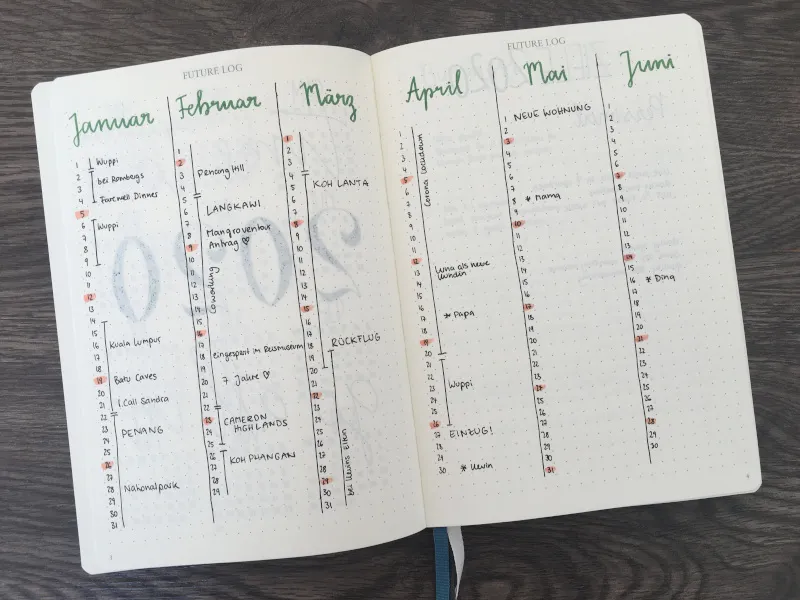 FUTURE LOG
Januar
Februar
März
1 Wuppi
2 bei Rombergs
3
4 Farewell Dinner
5
6 Wuppi
7
8
9
10
11
12
13
14
15
16 Kuala Lumpur
17
18
19 Batu Caves
20
21 1. Call Sandra
22
23 PENANG
24
25
26
27
28 Nationalpark
29
30
31
1
2
3 Penang Hill
4
5
6 LANGKAWI
7
8 Mangroventour
9 Antrag ♡
10
11
12 Coworking
13
14
15
16
17
18 eingesperrt im Reismuseum
19
20 7 Jahre ♡
21
22
23 CAMERON
24 HIGHLANDS
25
26
27 KOH PHANGAN
28
29
1
2
3
4
5 KOH LANTA
6
7
8
9
10
11
12
13
14
15
16
17
18 RÜCKFLUG
19
20
21
22
23
24
25
26 bei Kevins Eltern
27
28
29
30
31
3
FUTURE LOG
April
Mai
Juni
1
2
3
4 Corona Lockdown
5
6
7
8
9
10
11
12
13 Luna als neue
14 Kundin
15
16
17 * Papa
18
19
20
21
22
23 Wuppi
24
25
26
27 EINZUG!
28
29
30 * Kevin
1 NEUE WOHNUNG
2
3
4
5
6
7
8 * Mama
9
10
11
12
13
14
15
16
17
18
19
20
21
22
23
24
25
26
27
28
29
30
31
1
2
3
4
5
6
7
8
9
10
11
12
13
14
15
16 * Dina
17
18
19
20
21
22
23
24
25
26
27
28
29
30
4
2020